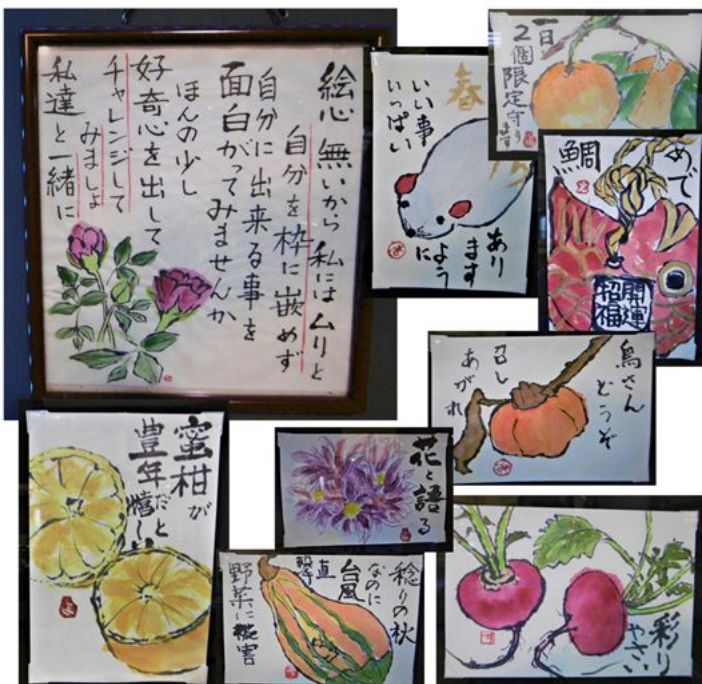 絵心 無いから 私にはムリと
自分を枠に嵌めず
自分に出来る事を
面白がってみませんか
ほんの少し
好奇心を出して
チャレンジして
みましょ
私達と一緒に
春
いい事
いっぱい
あり
ます
ように
一日
2個限定守ります
めで
鯛
開運
招福
鳥さん
どうぞ
召し
あがれ
蜜柑が
豊年だと
花と語る
稔りの秋
なのに
台風
直
撃
野菜に被害
彩り
やさい